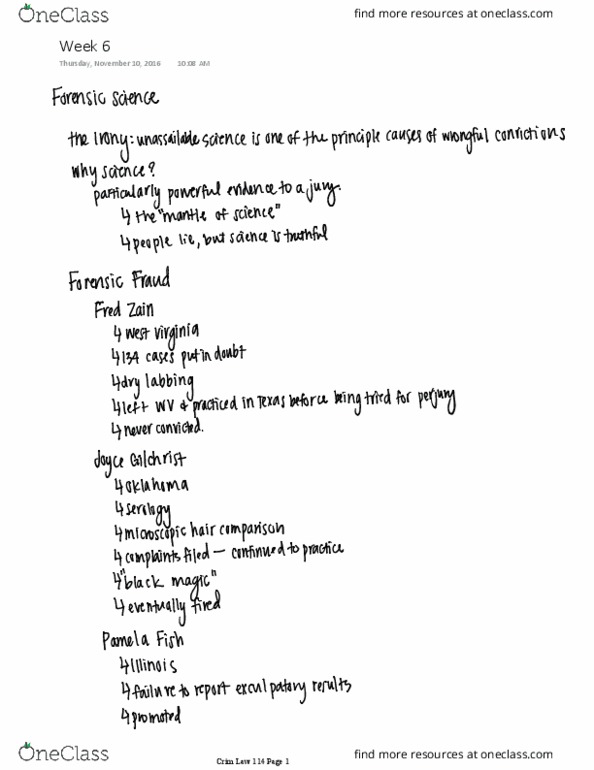 OneClass
find more resources at oneclass.com
Week 6
Thursday, November 10, 2016 10:08 AM
Forensic Science
the irony: unassailable science is one of the principle causes of wrongful convictions
Why science?
particularly powerful evidence to a jury.
↳ the "mantle of science"
↳ people lie, but science is truthful
Forensic Fraud
Fred Zain
↳ West Virginia
↳ 134 cases put in doubt
↳ dry labbing
↳ left WV & practiced in Texas beforce being tried for perjury
↳ never convicted.
Joyce Gilchrist
↳ Oklahoma
↳ serology
↳ microscopic hair comparison
↳ complaints filed — continued to practice
↳ "black magic"
↳ eventually fired
Pamela Fish
↳ Illinois
↳ failure to report exculpatory results
↳ promoted
OneClass
Crim Law 114 Page 1
find more resources at oneclass.com